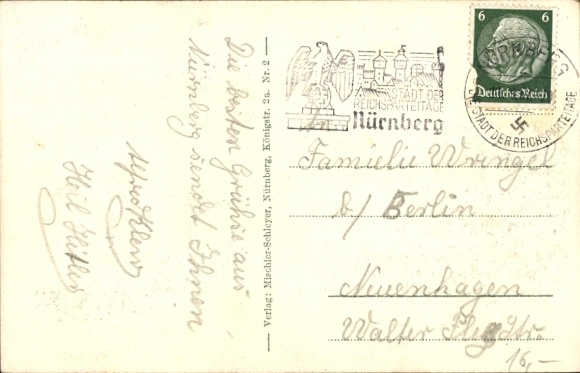 Die besten Grüße aus
Nürnberg sendet Ihnen
Alfred
Heil Hitler
Verlag: Mischler-Schleyer, Nürnberg, Königstr. 2a. Nr. 2
STADT DER
REICHSPARTEITAGE
Nürnberg
6 6
Deutsches Reich
NÜRNBERG
DIE STADT DER REICHSPARTEITAGE
Familie Wringel
b/ Berlin
Neuenhagen
Walter Str.
16,—